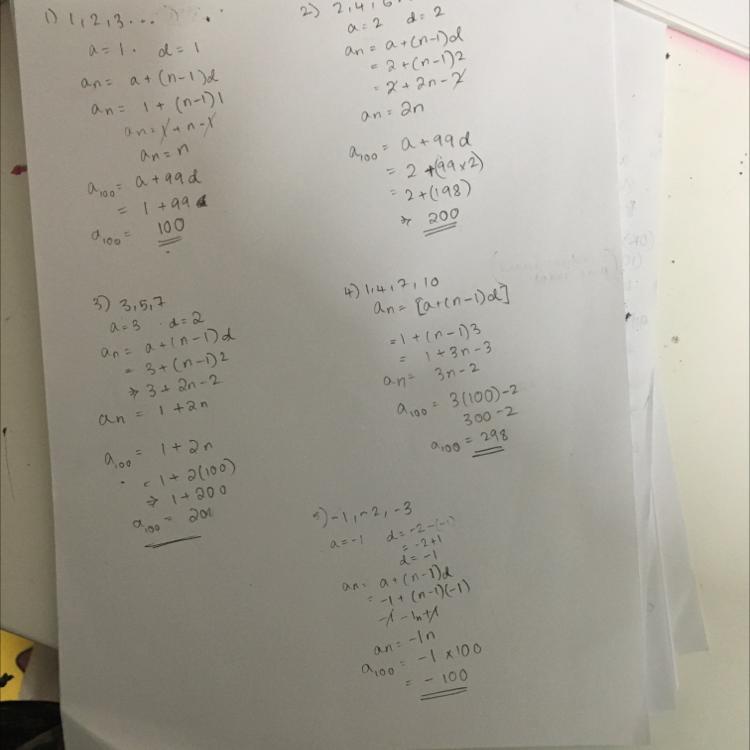 1) 1, 2, 3 ...
a = 1. d = 1
an = a + (n-1)d
an = 1 + (n-1)1
an = 1 + n - 1
an = n
a100 = a + 99d
= 1 + 99
a100 = 100
2) 2, 4, 6
a = 2 d = 2
an = a + (n-1)d
= 2 + (n-1)2
= 2 + 2n - 2
an = 2n
a100 = a + 99d
= 2 + (99×2)
= 2 + (198)
⇒ 200
3) 3, 5, 7
a = 3 d = 2
an = a + (n-1)d
= 3 + (n-1)2
⇒ 3 + 2n - 2
an = 1 + 2n
a100 = 1 + 2n
= 1 + 2(100)
⇒ 1 + 200
a100 = 201
4) 1, 4, 7, 10
an = [a + (n-1)d]
= 1 + (n-1)3
= 1 + 3n - 3
an = 3n - 2
a100 = 3(100) - 2
300 - 2
a100 = 298
5) -1, -2, -3
a = -1 d = -2 - (-1)
= -2 + 1
d = -1
an = a + (n-1)d
= -1 + (n-1)(-1)
-1 - 1n + 1
an = -1n
a100 = -1 × 100
= - 100